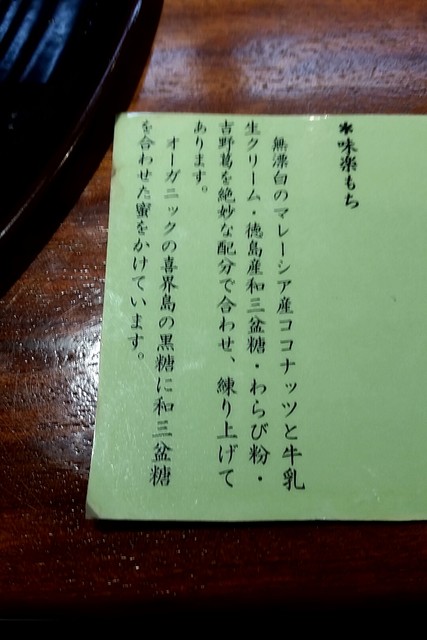 ＊味楽もち
無漂白のマレーシア産ココナッツと牛乳
生クリーム・徳島産和三盆糖・わらび粉・
吉野葛を絶妙な配分で合わせ、練り上げて
あります。
オーガニックの喜界島の黒糖に和三盆糖
を合わせた蜜をかけています。